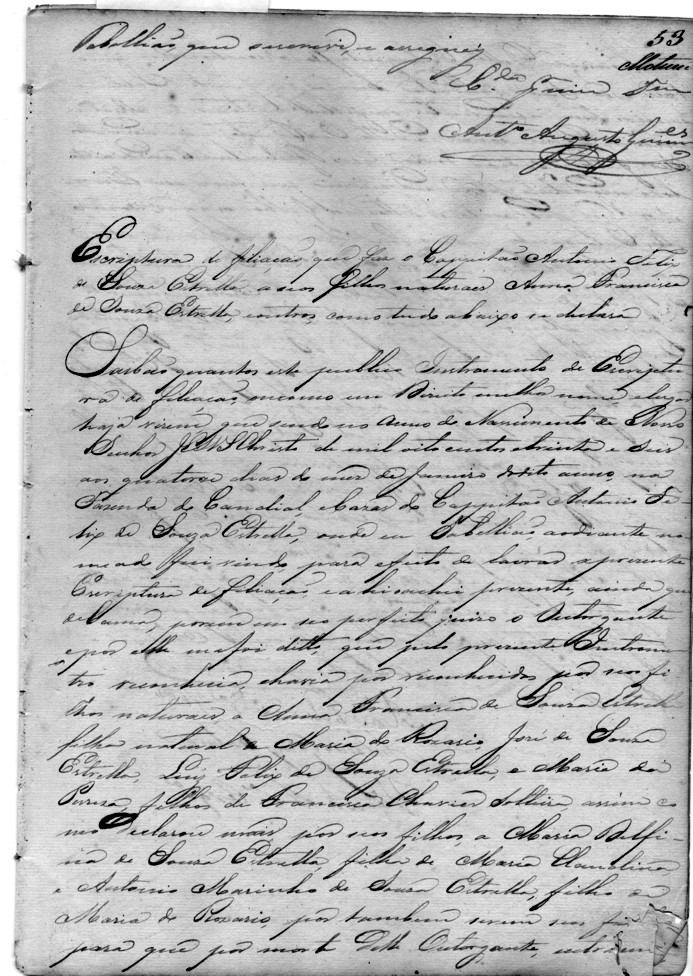 Tabellião que escrevi, e assignei
53
Ant.º Augusto Guim.es
Escriptura de filiação que faz o Cappitão Antonio Felix
de Souza Estrella, a seos filhos naturaes Anna Francisca
de Souza Estrella, e outros, como tudo abaixo se declara
Saibão quantos este publico Instrumento de Escriptu-
ra de filiação, ou como em Direito melhor nome e lugar
haja virem, que sendo no Anno do Nascimento de Nosso
Senhor JESUS Christo de mil oito centos e oitenta e seis
aos quatorze dias do mez de Janeiro do dito anno, na
Fazenda do Candial e Cazas do Cappitão Antonio Fe-
lix de Souza Estrella, onde eu Tabellião aodiante no-
meado fui vindo, para effeito de lavrar a presente
Escriptura de filiação, e ahi o achei presente, ainda que
de cama, porem em seo perfeito juizo o Outorgante
e por elle me foi dito, que pelo presente Instrumen-
to reconhecia, e havia por reconhecidos por seos fi-
lhos naturaes a Anna Francisca de Souza Estrella
filha natural de Maria do Rozario, José de Souza
Estrella, Luiz Felix de Souza Estrella, e Maria da
Pureza, filhos de Francisca Chavier solteira, assim co-
mo Declarou mais, por seos filhos, a Maria Delfi-
na de Souza Estrella, filha de Maria Claudina
e Antonio Marinho de Souza Estrella, filho de
Maria do Rozario, por tambem serem seos fi
para que por morte Delle Outorgante, entrem